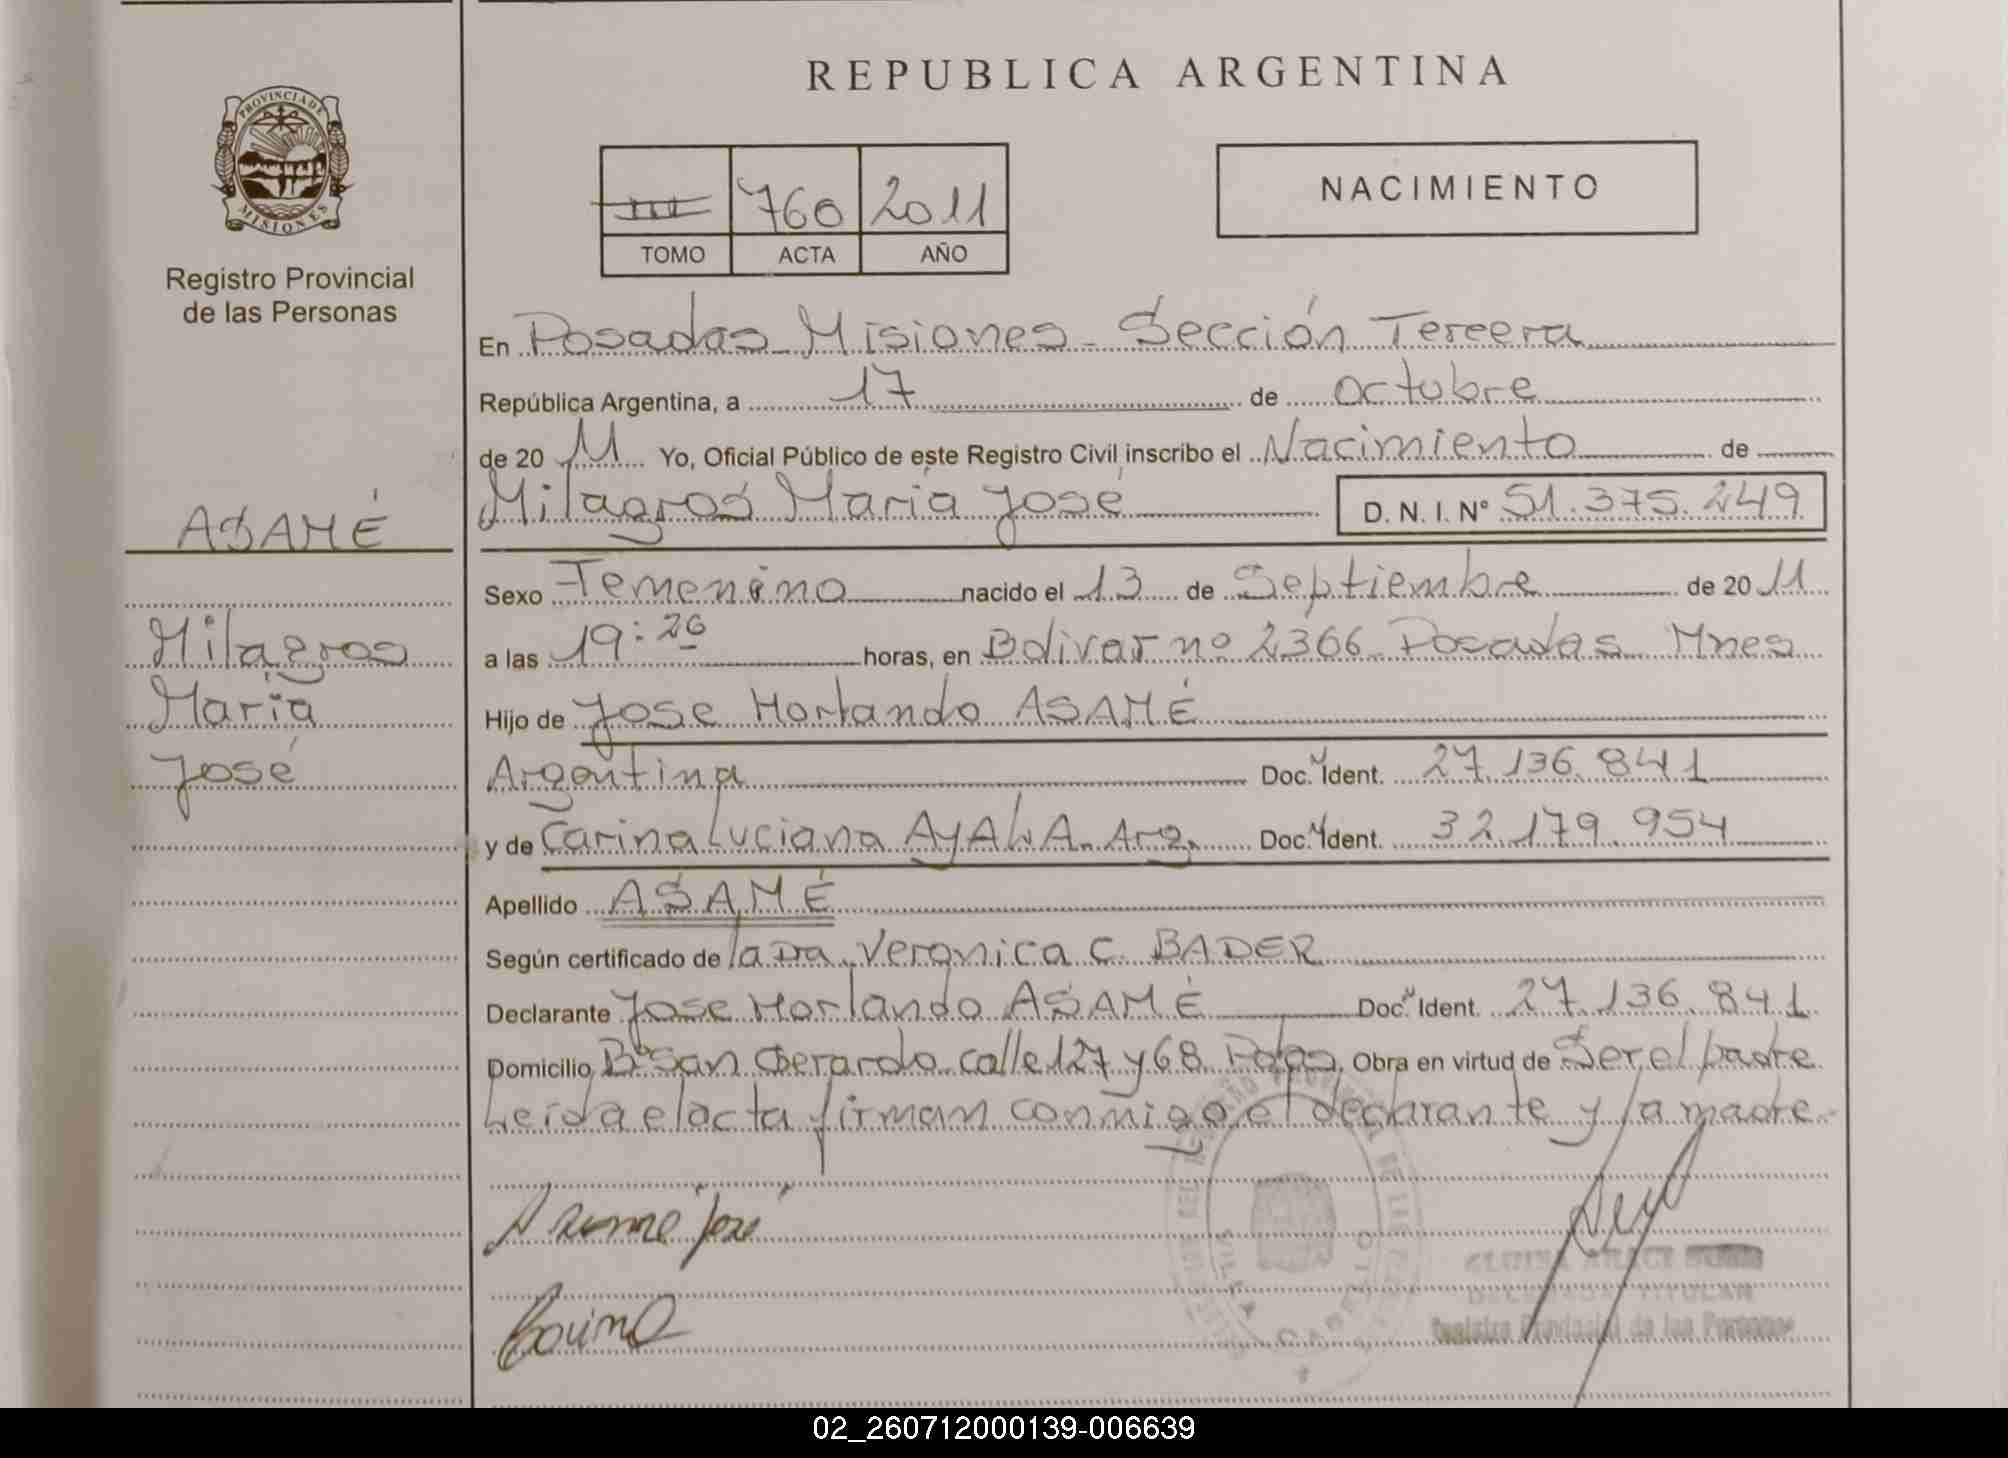 REPUBLICA ARGENTINA
PROVINCIA DE
MISIONES
Registro Provincial
de las Personas
760 2011
TOMO ACTA AÑO
NACIMIENTO
En Posadas Misiones - Sección Tercera
República Argentina, a 17 de octubre
de 20 11 Yo, Oficial Público de este Registro Civil inscribo el Nacimiento de
Milagros María José D. N. I. Nº 51.375.249
ASAMÉ
Milagros
María
José
Sexo Femenino nacido el 13 de Septiembre de 20 11
a las 19:26 horas, en Bolivar nº 2366 Posadas Mnes
Hijo de Jose Horlando ASAMÉ
Argentina Doc. Ident. 27.136.841
y de Carina Luciana AyALA. Arg. Doc. Ident. 32.179.954
Apellido ASAMÉ
Según certificado de la Dra. Veronica C. BADER
Declarante Jose Horlando ASAMÉ Doc. Ident. 27.136.841
Domicilio Bº San Gerardo calle 127 y 68 Pdas. Obra en virtud de Ser el padre
Leída el acta firman conmigo el declarante y la madre.-
Asamé José
Carina
TITULAR
Registro Provincial de las Personas
02_260712000139-006639